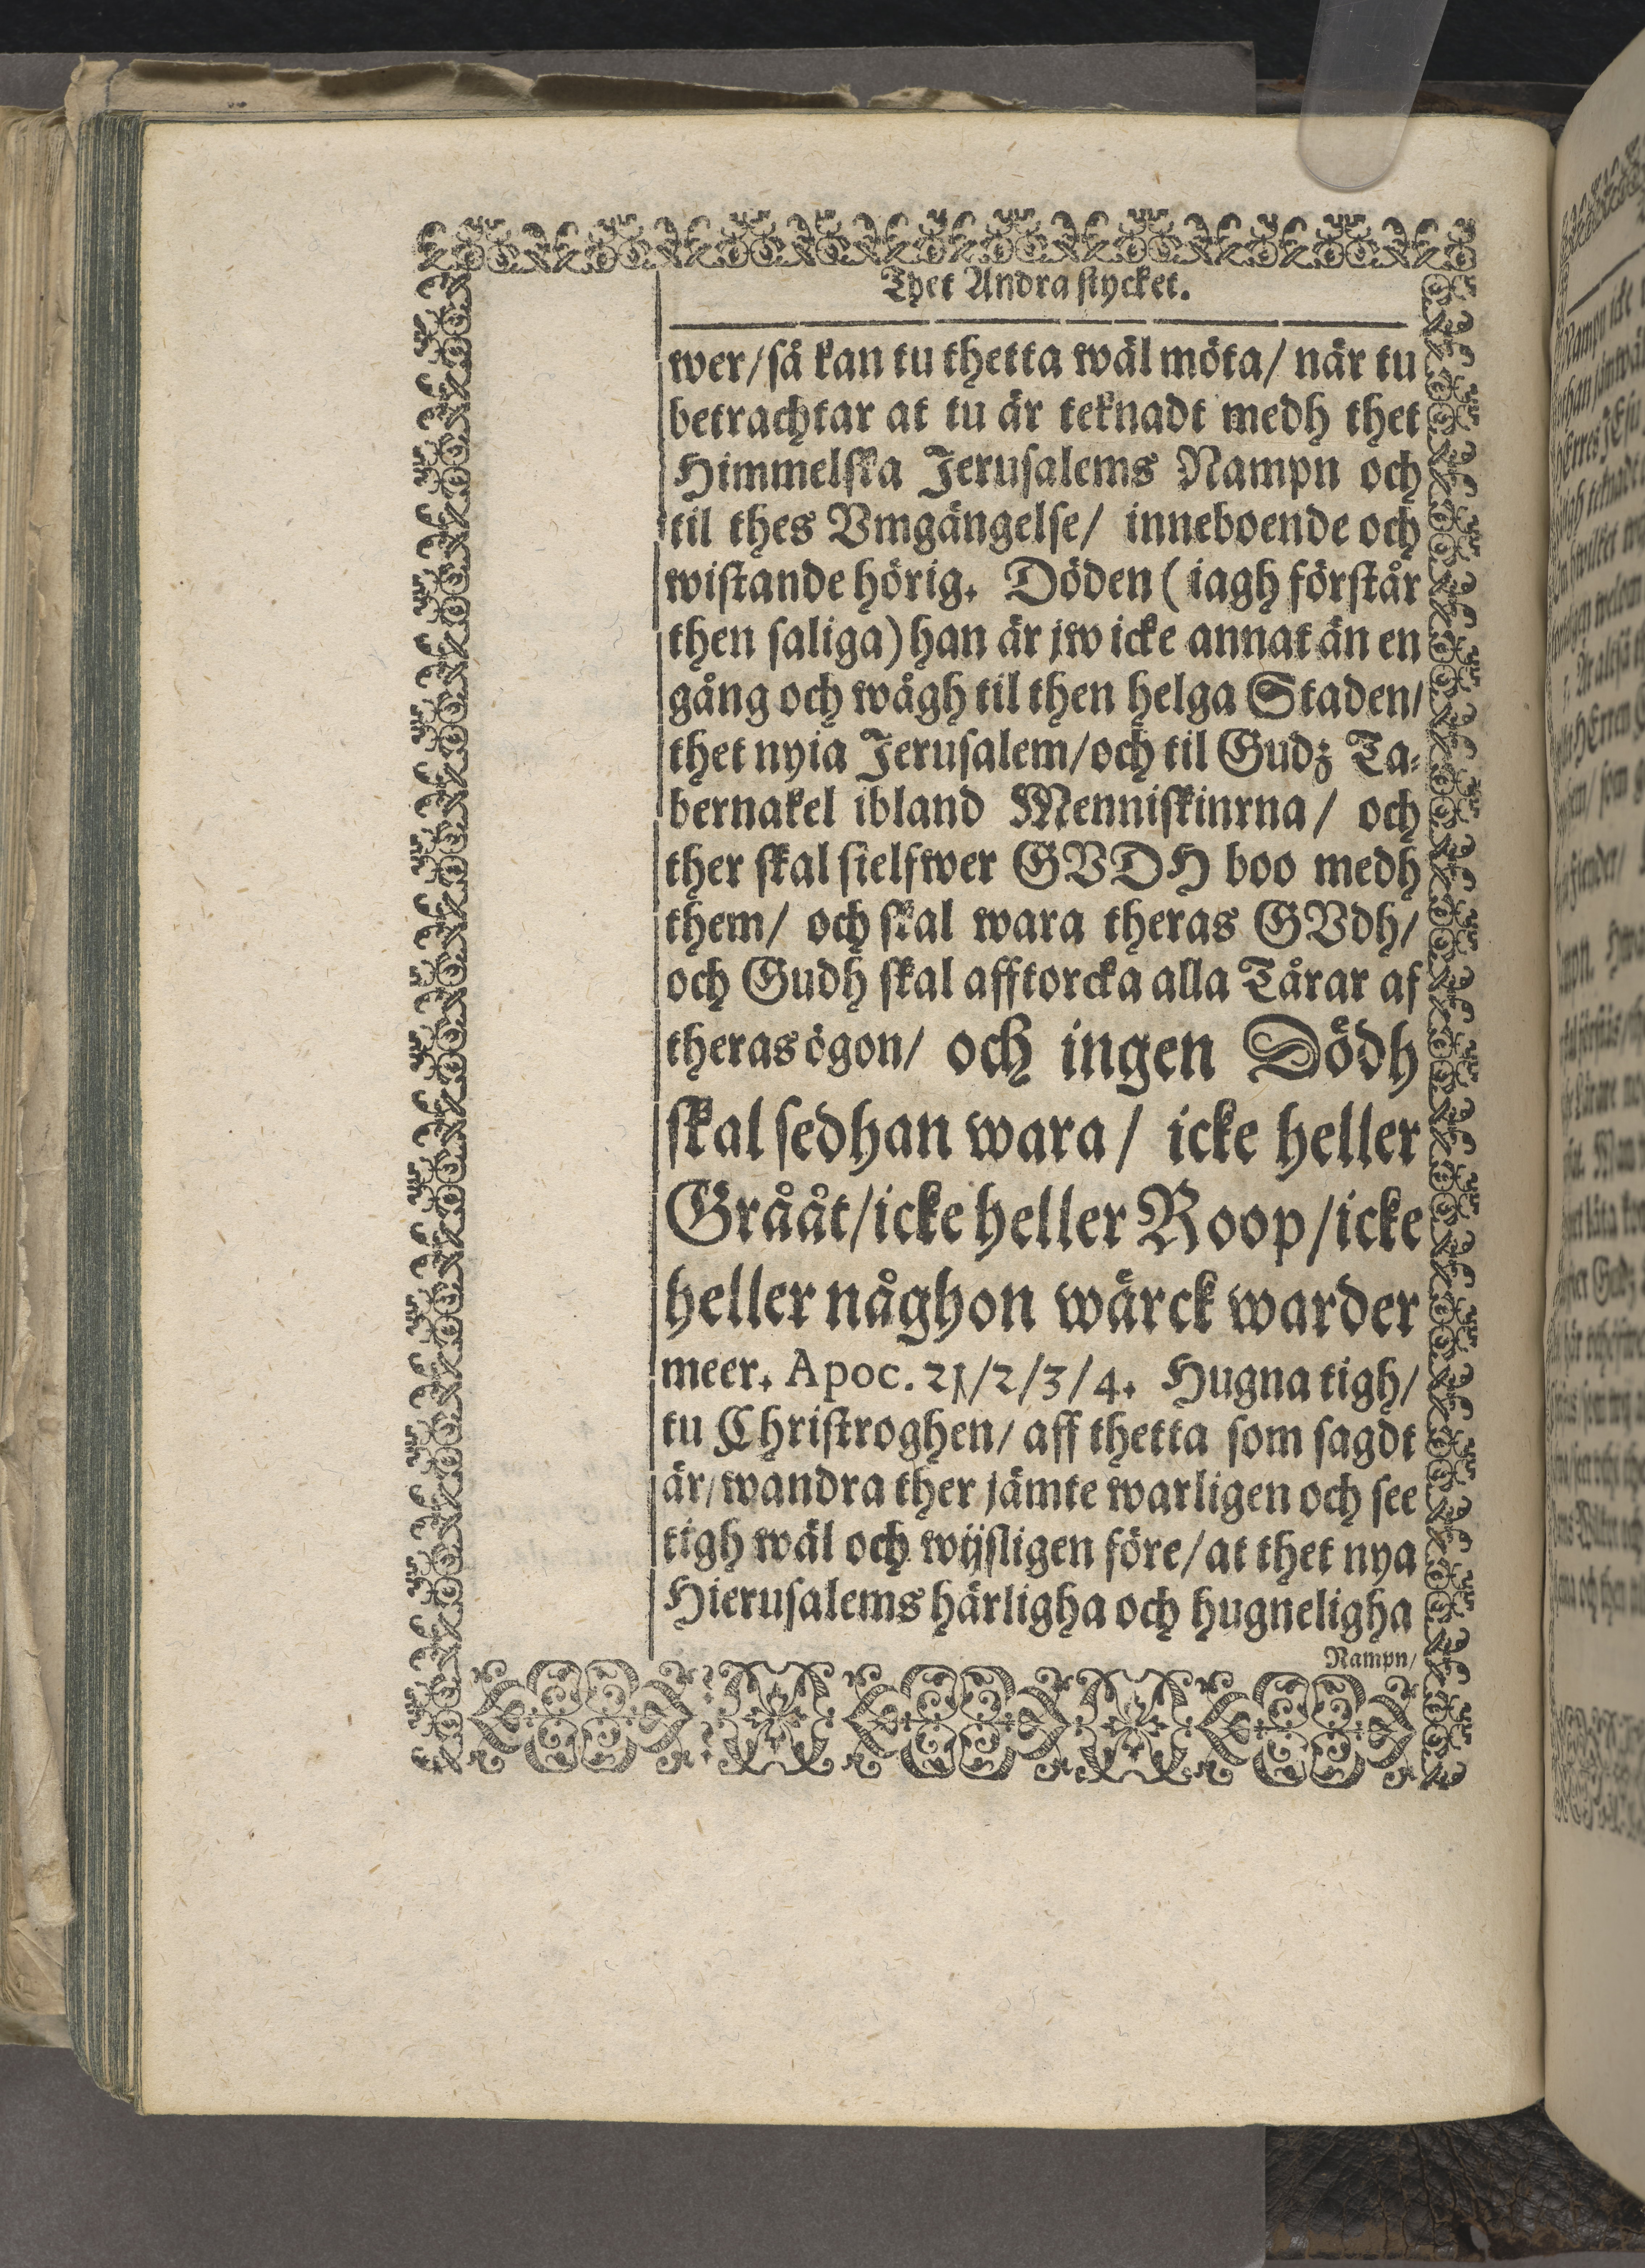 Thet Andra stycket.
wer/ så kan tu thetta wäl möta/ når tu
betrachtar at tu är teknadt medh thet
Himmelska Jerusalems Nampn och
til thes Vmgängelse/ inneboende och
wistande hörig. Döden ( iagh förstår
then saliga) han är jw icke annat än en
gång och wågh til then helga Staden/
thet nyia Jerusalem/och til Gudz Ta-
bernakel ibland Menniskinrna/ och
ther skal sielfwer GVDH boo medh
them/ och skal wara theras GVdh/
och Gudh skal afftorcka alla Tårar af
theras ögon/ och ingen Dödh
skal sedhan wara/ icke heller
Grååt/icke heller Roop/icke
heller någhon wärck warder
meer. Apoc. 21/2/3/4. Hugna tigh/
tu Christroghen/ aff thetta som sagdt
är/ wandra ther jämte warligen och see
tigh wäl och wijsligen före/at thet nya
Hierusalems härligha och hugneligha
Nampn/